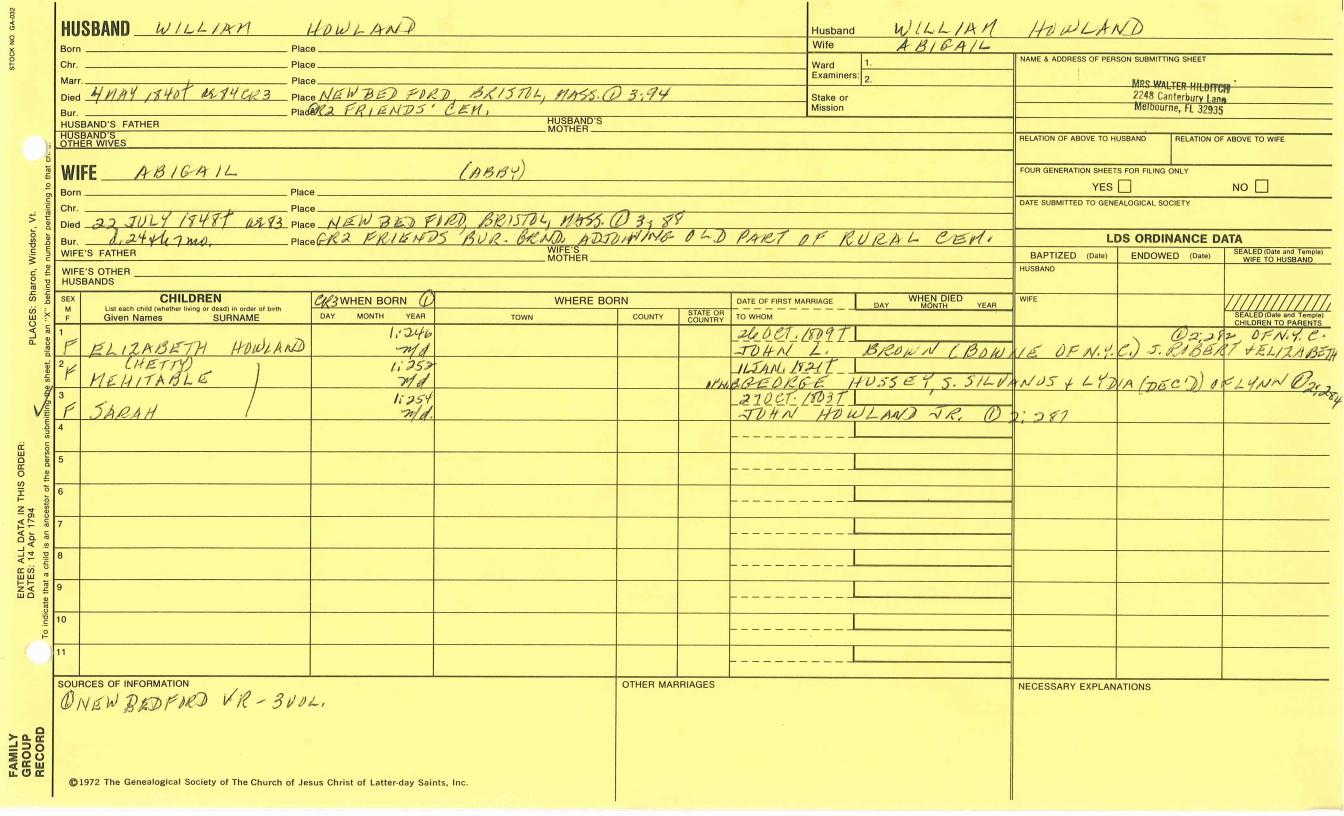 STOCK NO. GA-032
HUSBAND WILLIAM HOWLAND
Born Place
Chr. Place
Marr. Place
Died 4 MAY 1840† æ 84 GR3 Place NEW BEDFORD, BRISTOL, MASS. ① 3:94
Bur. Place GR2 FRIENDS' CEM.
HUSBAND'S FATHER HUSBAND'S MOTHER
HUSBAND'S OTHER WIVES
Husband WILLIAM HOWLAND
Wife ABIGAIL
Ward Examiners: 1.
2.
Stake or Mission
NAME & ADDRESS OF PERSON SUBMITTING SHEET
MRS WALTER HILDITCH
2248 Canterbury Lane
Melbourne, FL 32935
RELATION OF ABOVE TO HUSBAND RELATION OF ABOVE TO WIFE
FOUR GENERATION SHEETS FOR FILING ONLY
YES NO
DATE SUBMITTED TO GENEALOGICAL SOCIETY
WIFE ABIGAIL (ABBY)
Born Place
Chr. Place
Died 22 JULY 1848† æ 83 Place NEW BEDFORD, BRISTOL, MASS. ① 3:88
Bur. d. 24th 7 mo. Place GR2 FRIENDS' BUR. GRND. ADJOINING OLD PART OF RURAL CEM.
WIFE'S FATHER WIFE'S MOTHER
WIFE'S OTHER HUSBANDS
LDS ORDINANCE DATA
BAPTIZED (Date) ENDOWED (Date) SEALED (Date and Temple) WIFE TO HUSBAND
HUSBAND
WIFE
SEALED (Date and Temple) CHILDREN TO PARENTS
SEX M F CHILDREN
List each child (whether living or dead) in order of birth
Given Names SURNAME
GR3 WHEN BORN ①
DAY MONTH YEAR
WHERE BORN
TOWN COUNTY STATE OR COUNTRY
DATE OF FIRST MARRIAGE
TO WHOM
WHEN DIED
DAY MONTH YEAR
1 1:246 26 OCT. 1809† ① 2:292 OF N.Y.C.
F ELIZABETH HOWLAND n/d JOHN L. BROWN (BOWNE OF N.Y.C.) S. ROBERT + ELIZABETH
2 (HETTY) 1:252 11 JAN. 1821†
F MEHITABLE n/d GEORGE HUSSEY, S. SILVANUS + LYDIA (DEC'D) OF LYNN ① 2:284
3 1:254 27 OCT. 1803†
F SARAH n/d. JOHN HOWLAND JR. ① 2:287
4
5
6
7
8
9
10
11
SOURCES OF INFORMATION
① NEW BEDFORD VR - 3 VOL.
OTHER MARRIAGES
NECESSARY EXPLANATIONS
©1972 The Genealogical Society of The Church of Jesus Christ of Latter-day Saints, Inc.
FAMILY GROUP RECORD
ENTER ALL DATA IN THIS ORDER:
DATES: 14 Apr 1794
PLACES: Sharon, Windsor, Vt.
To indicate that a child is an ancestor of the person submitting the sheet, place an "X" behind the number pertaining to that